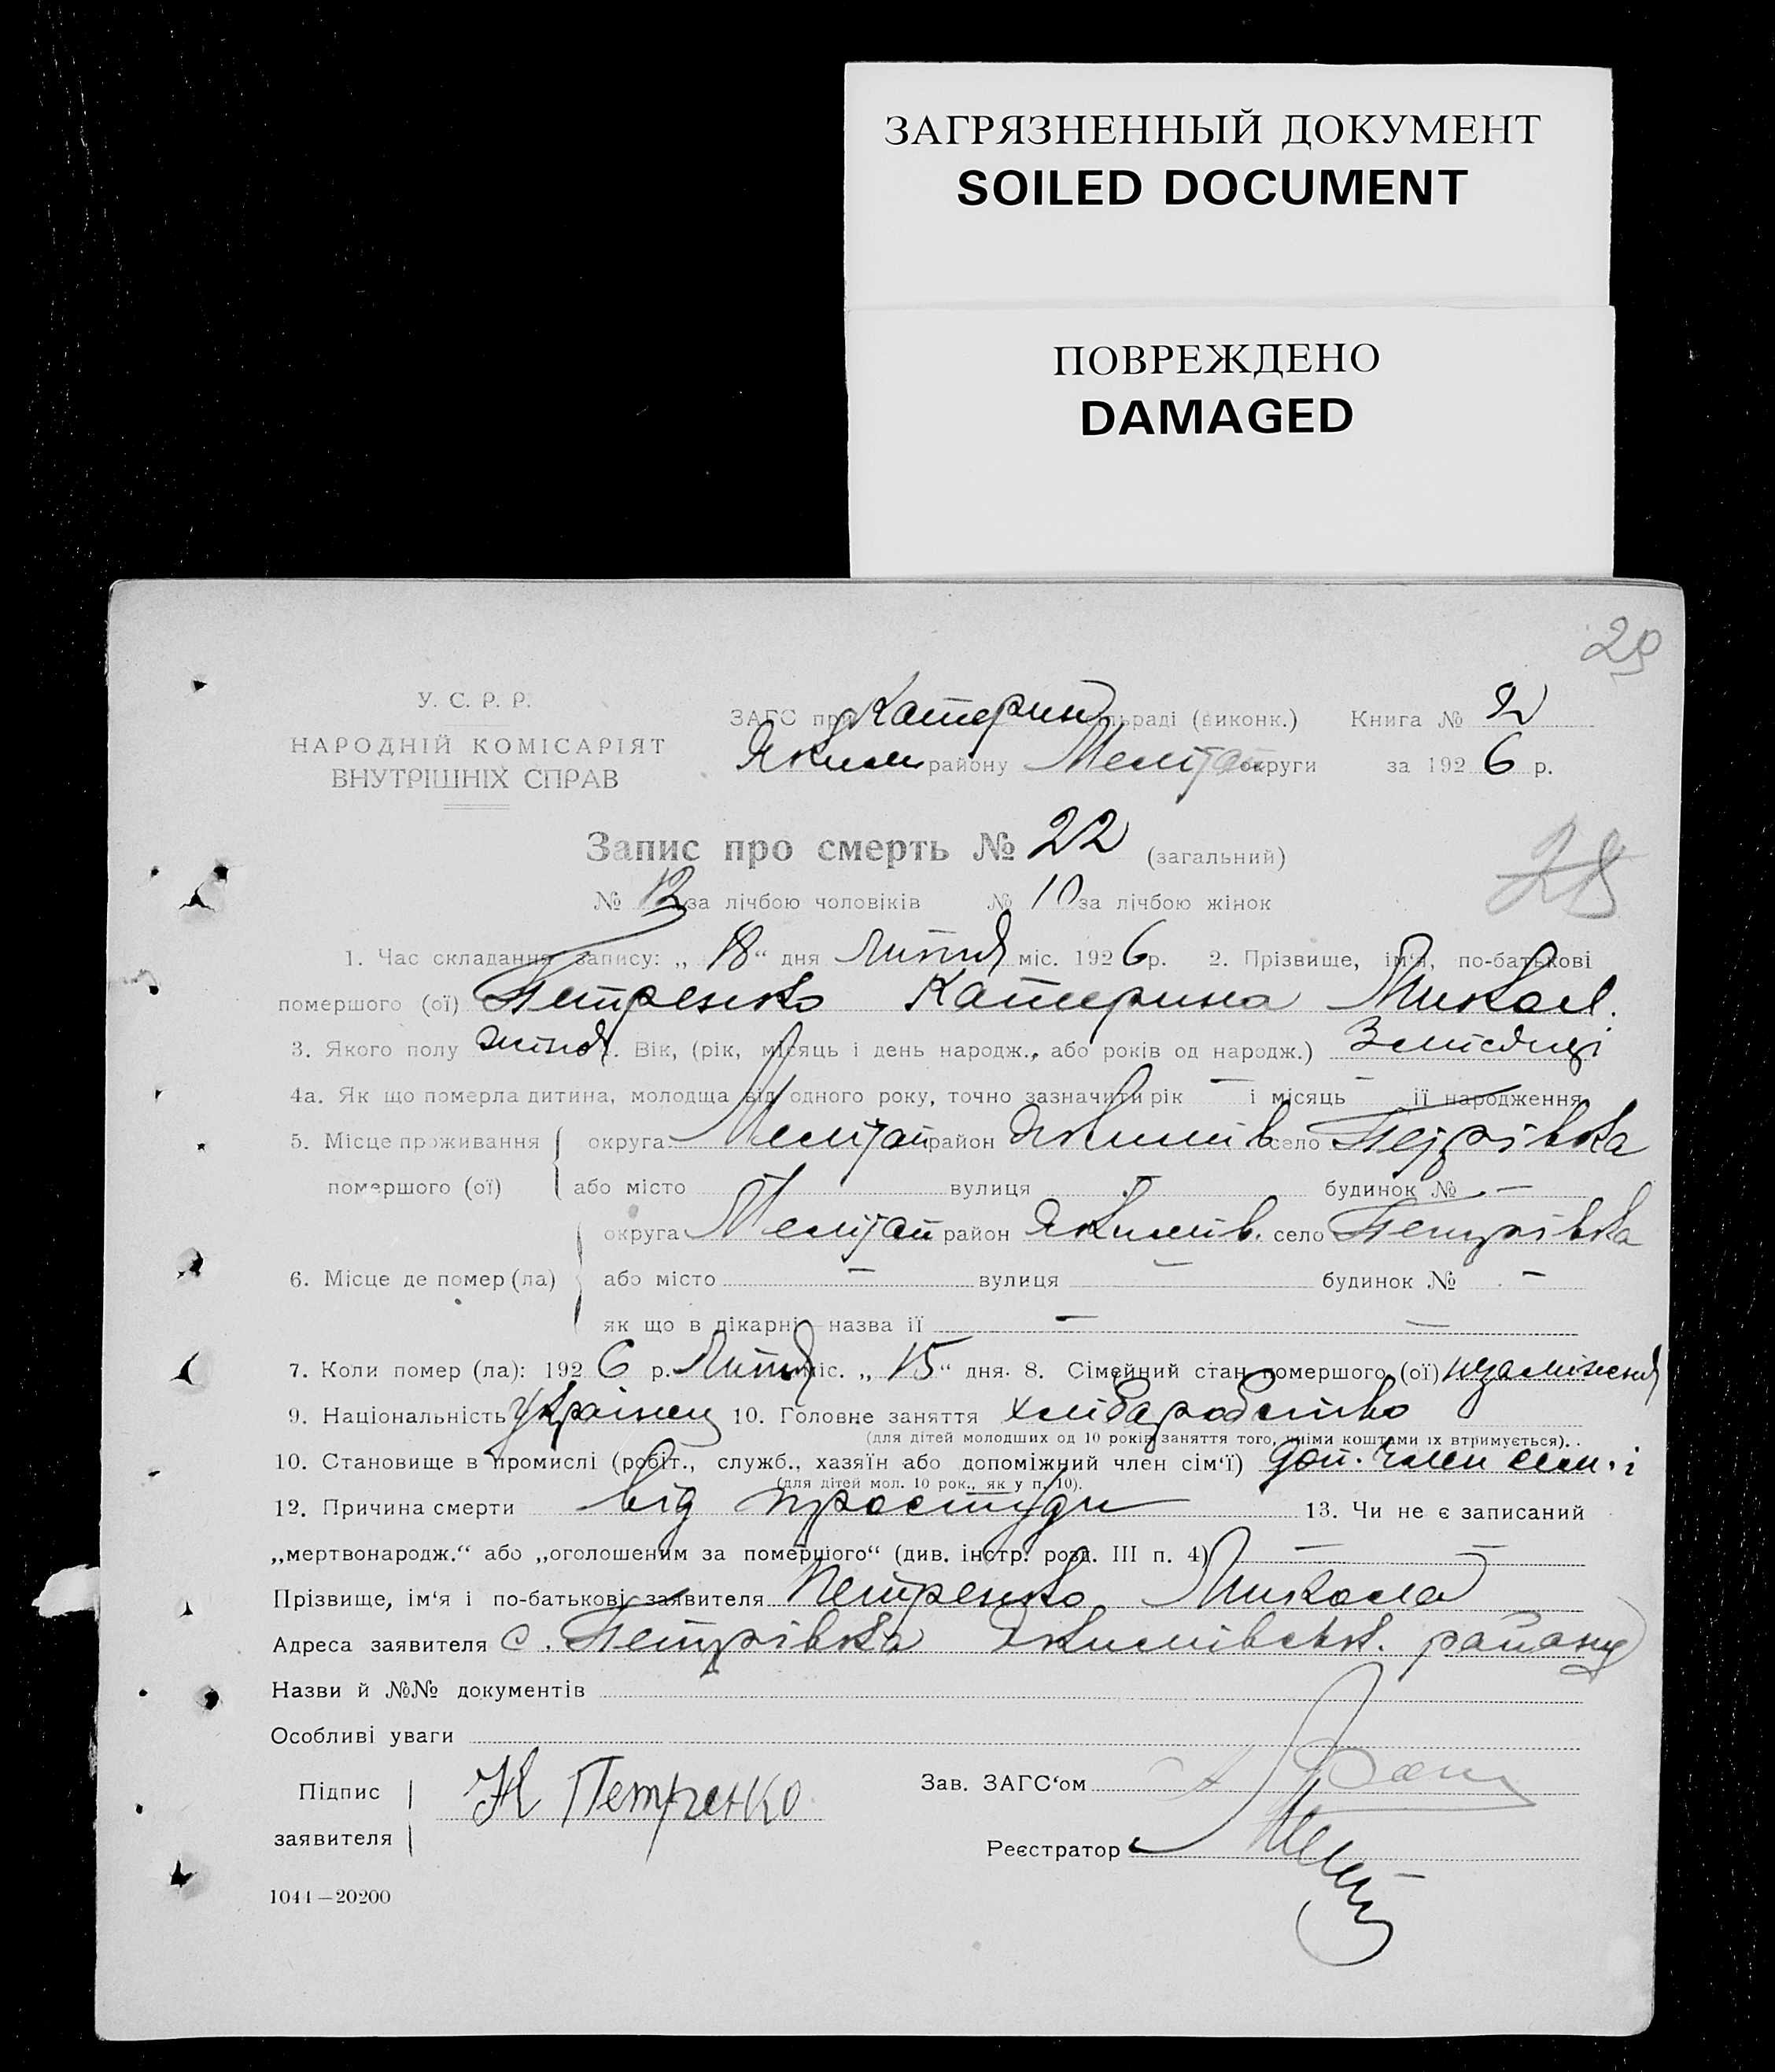 ЗАГРЯЗНЕННЫЙ ДОКУМЕНТ
SOILED DOCUMENT
ПОВРЕЖДЕНО
DAMAGED
29
У. С. Р. Р.
НАРОДНІЙ КОМІСАРІЯТ
ВНУТРІШНІХ СПРАВ
ЗАГС при Катерин ільраді (виконк.) Книга № 2
Яким району Меліт округи за 1926 р.
Запис про смерть № 22 (загальний)
28
№ 12 за лічбою чоловіків № 10 за лічбою жінок
1. Час складання запису: „ 18 “ дня Липня міс. 1926 р. 2. Прізвище, ім‘я, по-батькові
помершого (ої) Петренко Катерина Микол.
3. Якого полу жіноч. Вік, (рік, місяць і день народж., або років од народж.) 3 місяці
4а. Як що померла дитина, молодща від одного року, точно зазначити рік — і місяць — ії народження
5. Місце проживання округа Мелітоп район Якимів село Петрівка
помершого (ої) або місто вулиця будинок № —
округа Мелітоп район Якимів. село Петрівка
6. Місце де помер (ла) або місто — вулиця — будинок № —
як що в лікарні—назва ії — —
7. Коли помер (ла): 1926 р. Липня міс. „ 15 “ дня. 8. Сімейний стан помершого (ої) незаміжня
9. Національність Українец 10. Головне заняття хлібаробство
(для дітей молодших од 10 років заняття того, чиїми коштами їх втримується).
10. Становище в промислі (робіт., служб., хазяїн або допоміжний член сім‘ї) доп. член сем.і
(для дітей мол. 10 рок., як у п. 10).
12. Причина смерти від простуди 13. Чи не є записаний
„мертвонародж.“ або „оголошеним за помершого“ (див. інстр. розд. III п. 4) — —
Прізвище, ім‘я і по-батькові заявителя Петренко Микола
Адреса заявителя с. Петрівка Якимівськ. району
Назви й №№ документів
Особливі уваги
Підпис
заявителя
Н Петренко
Зав. ЗАГС‘ом
Реєстратор
1044—20200